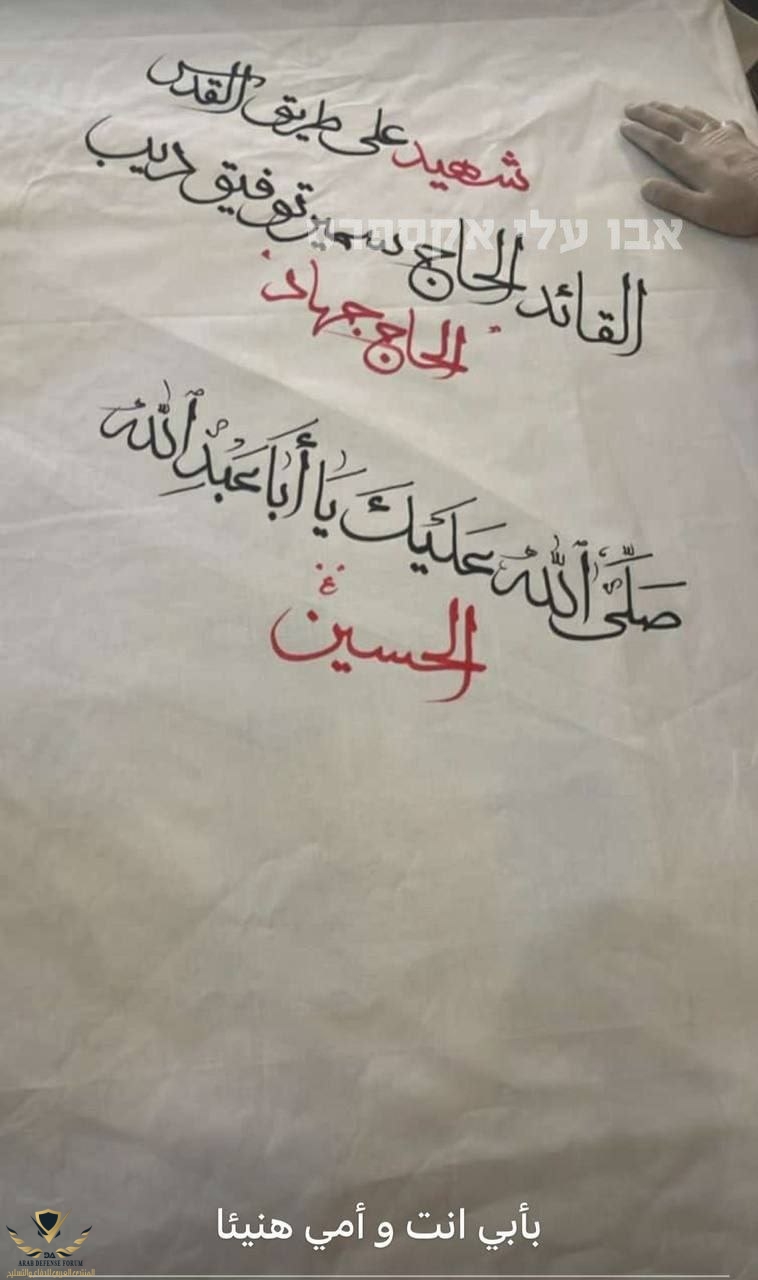 شهيد على طريق القدس
القائد الحاج سمير توفيق ديب
"الحاج جهاد"
אבו עלי אקספרס
صَلَّى ٱللَّهُ عَلَيْكَ يَا أَبَا عَبْدِ ٱللَّهِ
الحسين
ع
بأبي انت و أمي هنيئا
DA
ARAB DEFENSE FORUM
المنتدى العربي للدفاع والتسليح